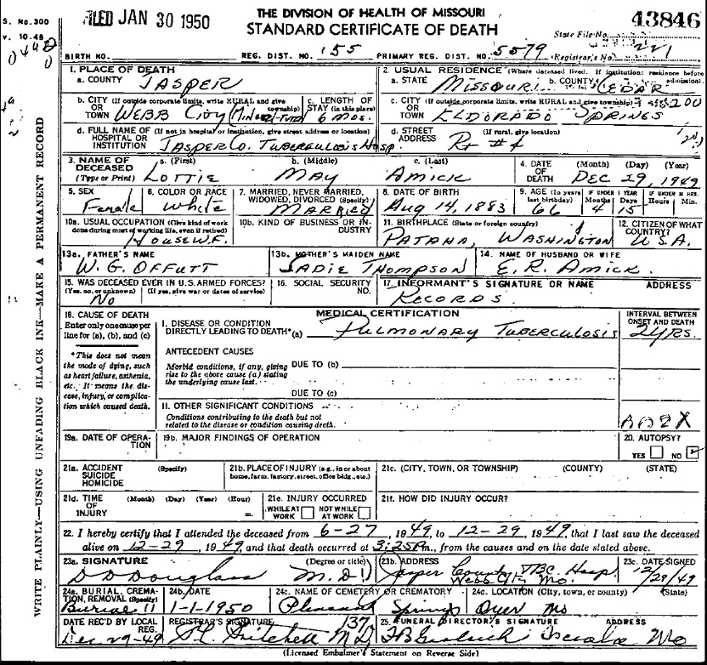 S. No. 300
v. 10-48
FILED JAN 30 1950
THE DIVISION OF HEALTH OF MISSOURI
STANDARD CERTIFICATE OF DEATH
43846
State File No.
BIRTH NO. REG. DIST. NO. 155 PRIMARY REG. DIST. NO. 5079 Registrar's No. 221
WRITE PLAINLY—USING UNFADING BLACK INK—MAKE A PERMANENT RECORD
1. PLACE OF DEATH
a. COUNTY JASPER
2. USUAL RESIDENCE (Where deceased lived. If institution: residence before admission)
a. STATE MISSOURI b. COUNTY CEDAR
b. CITY (If outside corporate limits, write RURAL and give township)
OR TOWN WEBB CITY
c. LENGTH OF STAY (in this place) 6 MOS.
c. CITY (If outside corporate limits, write RURAL and give township)
OR TOWN ELDORADO SPRINGS
d. FULL NAME OF HOSPITAL OR INSTITUTION (If not in hospital or institution, give street address or location)
JASPER CO. TUBERCULOSIS HOSP.
d. STREET ADDRESS (If rural, give location)
3. NAME OF DECEASED (Type or Print)
a. (First) LOTTIE b. (Middle) MAY c. (Last) AMICK
4. DATE OF DEATH (Month) (Day) (Year) DEC 29, 1949
5. SEX Female
6. COLOR OR RACE White
7. MARRIED, NEVER MARRIED, WIDOWED, DIVORCED (Specify) MARRIED
8. DATE OF BIRTH Aug 14, 1883
9. AGE (In years last birthday) 66 IF UNDER 1 YEAR Months 4 Days 15 IF UNDER 24 HRS. Hours Min.
10a. USUAL OCCUPATION (Give kind of work done during most of working life, even if retired) HOUSEWF.
10b. KIND OF BUSINESS OR INDUSTRY
11. BIRTHPLACE (State or foreign country) PATAHA, WASHINGTON
12. CITIZEN OF WHAT COUNTRY? U.S.A.
13a. FATHER'S NAME W. G. OFFUTT
13b. MOTHER'S MAIDEN NAME SADIE THOMPSON
14. NAME OF HUSBAND OR WIFE E. R. AMICK
15. WAS DECEASED EVER IN U.S. ARMED FORCES? (Yes, no, or unknown) (If yes, give war or dates of service) No
16. SOCIAL SECURITY NO.
17. INFORMANT'S SIGNATURE OR NAME ADDRESS
RECORDS
18. CAUSE OF DEATH
Enter only one cause per line for (a), (b), and (c)
*This does not mean the mode of dying, such as heart failure, asthenia, etc. It means the disease, injury, or complication which caused death.
MEDICAL CERTIFICATION
INTERVAL BETWEEN ONSET AND DEATH
I. DISEASE OR CONDITION DIRECTLY LEADING TO DEATH*(a) PULMONARY TUBERCULOSIS 2 YRS.
ANTECEDENT CAUSES
Morbid conditions, if any, giving rise to the above cause (a) stating the underlying cause last.
DUE TO (b)
DUE TO (c)
II. OTHER SIGNIFICANT CONDITIONS
Conditions contributing to the death but not related to the disease or condition causing death.
19a. DATE OF OPERATION
19b. MAJOR FINDINGS OF OPERATION
20. AUTOPSY?
YES NO
21a. ACCIDENT SUICIDE HOMICIDE (Specify)
21b. PLACE OF INJURY (e.g., in or about home, farm, factory, street, office bldg., etc.)
21c. (CITY, TOWN, OR TOWNSHIP) (COUNTY) (STATE)
21d. TIME OF INJURY (Month) (Day) (Year) (Hour) m.
21e. INJURY OCCURRED
WHILE AT WORK NOT WHILE AT WORK
21f. HOW DID INJURY OCCUR?
22. I hereby certify that I attended the deceased from 6-27, 1949, to 12-29, 1949, that I last saw the deceased
alive on 12-29, 1949, and that death occurred at 3:25 m., from the causes and on the date stated above.
23a. SIGNATURE (Degree or title) D D Douglass M.D.
23b. ADDRESS Jasper County TBC. Hosp. Webb City Mo.
23c. DATE SIGNED 12/29/49
24a. BURIAL, CREMATION, REMOVAL (Specify) Burial
24b. DATE 1-1-1950
24c. NAME OF CEMETERY OR CREMATORY Pleasant Springs
24c. LOCATION (City, town, or county) (State) Mo
DATE REC'D BY LOCAL REG. Dec 29-49
REGISTRAR'S SIGNATURE
25. FUNERAL DIRECTOR'S SIGNATURE ADDRESS Mo
(Licensed Embalmer's Statement on Reverse Side)